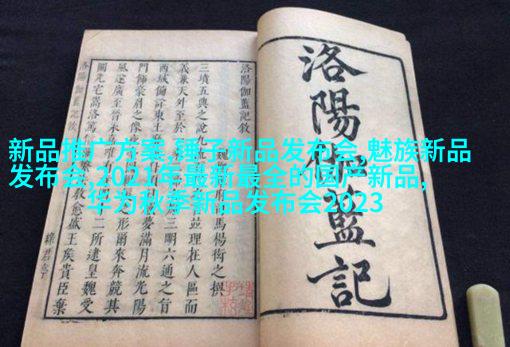 新品推广方案,锤子新品发布会,魅族新品
发布会,2021年最新最全的国产新品,
华为秋季新品发布会2023
洛陽伽藍記
洛陽伽藍記敘
馬楊衒之撰
三墳五典之說九流
義兼天外至於 並理在人區而
三明六通之旨
西域備詳東 夢滿月流光陽
門飾豪眉之像 之形爾來奔競其
風遂廣至晉 二所逮皇魏受
圖光宅嵩洛篤 愈盛王侯貴臣棄